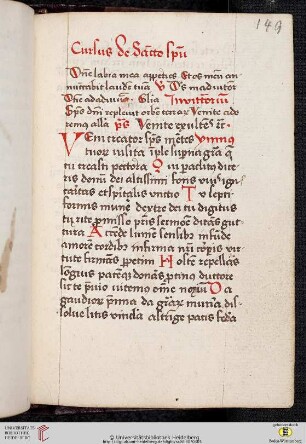 149
Cursus de Sancto spu
Dne labia mea apperies Et os meu an
nuntiabit laude tua V Ds in adiutor
Dne ad adiuua Glia Inuitatoriu
Sps dni repleuit orbe terrar Venite ado
rem alla ps Venite exultem
VEni creator sps mentes ymnus
tuor visita imple supna gra q
tu creasti pectora Qui paclitus dice
ris donu dei altissimi fons viuus ignis
caritas et spiritalis vnctio Tu septi
formis mune dextre dei tu digitus
tu rite pmisso pris sermone ditas gut
tura Accede lumen sensibus infude
amore cordibus infirma nri corpis vir
tute firmans ppetim Hostem repellas
longius pacemq dones ptinus ductore
sic te preuio vitemus omne noxiu Da
gaudior pmia da grar munera dis
solue litis vincula astringe pacis federa
UNIVERSITÄTS-
BIBLIOTHEK
HEIDELBERG
© Universitätsbibliothek Heidelberg